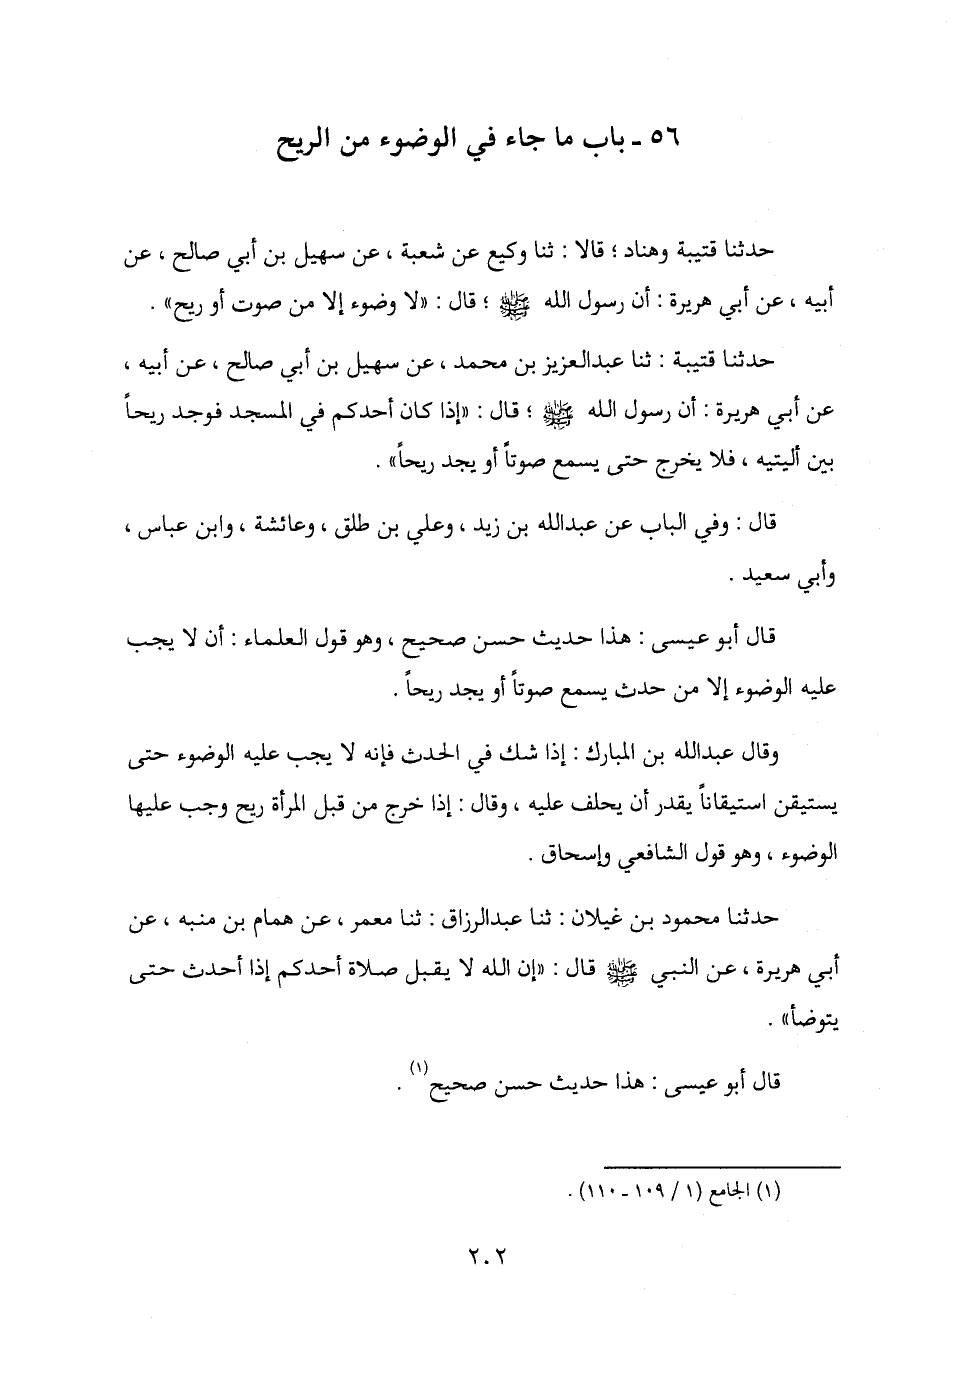 ٥٦ ـ باب ما جاء في الوضوء من الريح
حدثنا قتيبة وهناد ؛ قالا : ثنا وكيع عن شعبة ، عن سهيل بن أبي صالح ، عن
أبيه ، عن أبي هريرة : أن رسول الله ﷺ ؛ قال : «لا وضوء إلا من صوت أو ريح» .
حدثنا قتيبة : ثنا عبدالعزيز بن محمد ، عن سهيل بن أبي صالح ، عن أبيه ،
عن أبي هريرة : أن رسول الله ﷺ ؛ قال : «إذا كان أحدكم في المسجد فوجد ريحاً
بين أليتيه ، فلا يخرج حتى يسمع صوتاً أو يجد ريحاً» .
قال : وفي الباب عن عبدالله بن زيد ، وعلي بن طلق ، وعائشة ، وابن عباس ،
وأبي سعيد .
قال أبو عيسى : هذا حديث حسن صحيح ، وهو قول العلماء : أن لا يجب
عليه الوضوء إلا من حدث يسمع صوتاً أو يجد ريحاً .
وقال عبدالله بن المبارك : إذا شك في الحدث فإنه لا يجب عليه الوضوء حتى
يستيقن استيقاناً يقدر أن يحلف عليه ، وقال : إذا خرج من قبل المرأة ريح وجب عليها
الوضوء ، وهو قول الشافعي وإسحاق .
حدثنا محمود بن غيلان : ثنا عبدالرزاق : ثنا معمر ، عن همام بن منبه ، عن
أبي هريرة ، عن النبي ﷺ قال : «إن الله لا يقبل صلاة أحدكم إذا أحدث حتى
يتوضأ» .
قال أبو عيسى : هذا حديث حسن صحيح(١) .
(١) الجامع (١ / ١٠٩ ـ ١١٠) .
٢٠٢